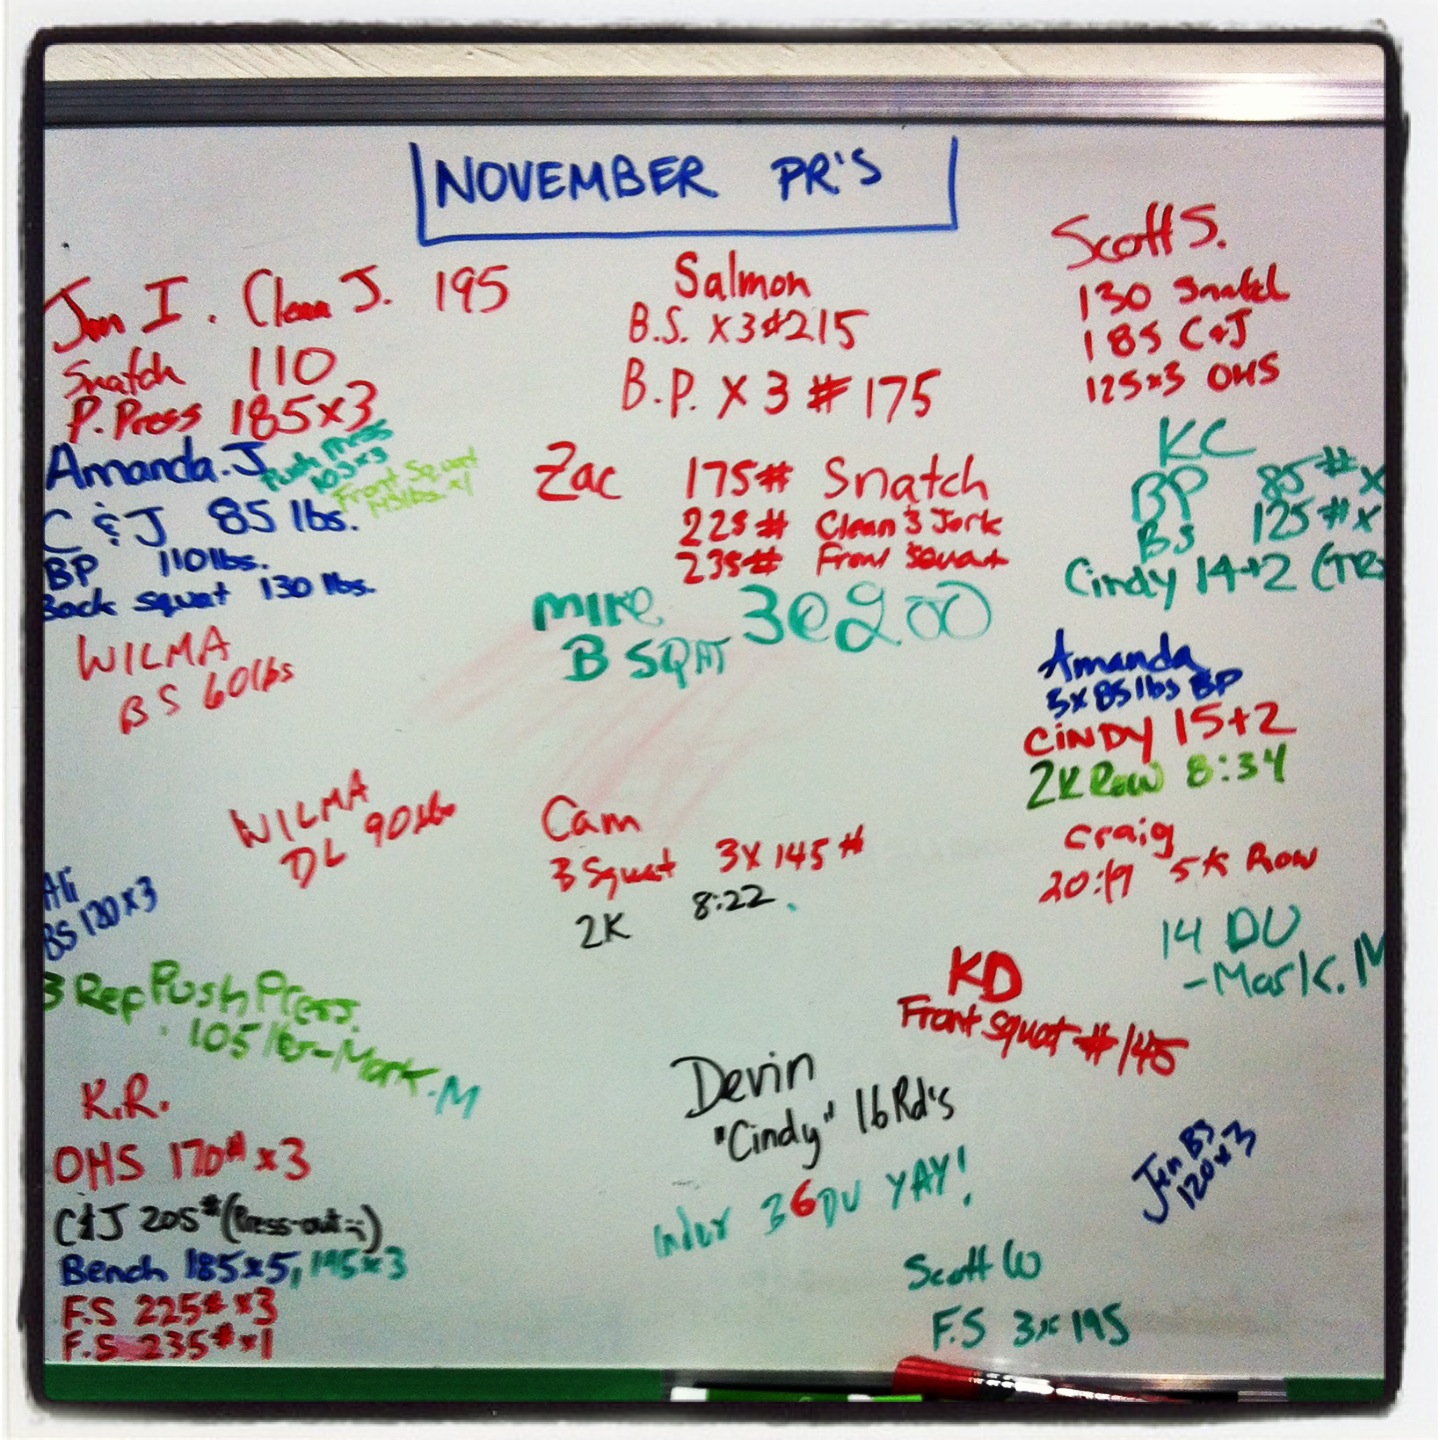 NOVEMBER PR'S
Jon I. Clean J. 195
Snatch 110
P. Press 185x3
Amanda.J
Push Press
105x3
Front Squat
C & J 85 lbs.
BP 110lbs.
Back squat 130 lbs.
WILMA
BS 60lbs
WILMA
DL 90lbs
Ali
BS 120x3
3 Rep Push Press.
105 lbs-Mark.M
K.R.
OHS 170# x3
C&J 205# (Press-out :-)
Bench 185x5, 195x3
F.S 225# x3
F.S 235# x1
Salmon
B.S. x3 #215
B.P. X 3 # 175
Zac 175# Snatch
225# Clean & Jerk
235# Front Squat
MIKE 3@200
B SQAT
Cam
B Squat 3x145#
2K 8:22
Devin
"Cindy" 16 Rd's
36 DU YAY!
Scott S.
130 Snatch
185 C&J
125x3 OHS
KC
BP 85# x
BS 125# x
Cindy 14+2 (TR
Amanda
3x85lbs BP
CINDY 15+2
2K Row 8:34
Craig
20:19 5K Row
14 DU
-Mark.M
KD
Front Squat #145
Jen BS
120x3
Scott W
F.S 3x195